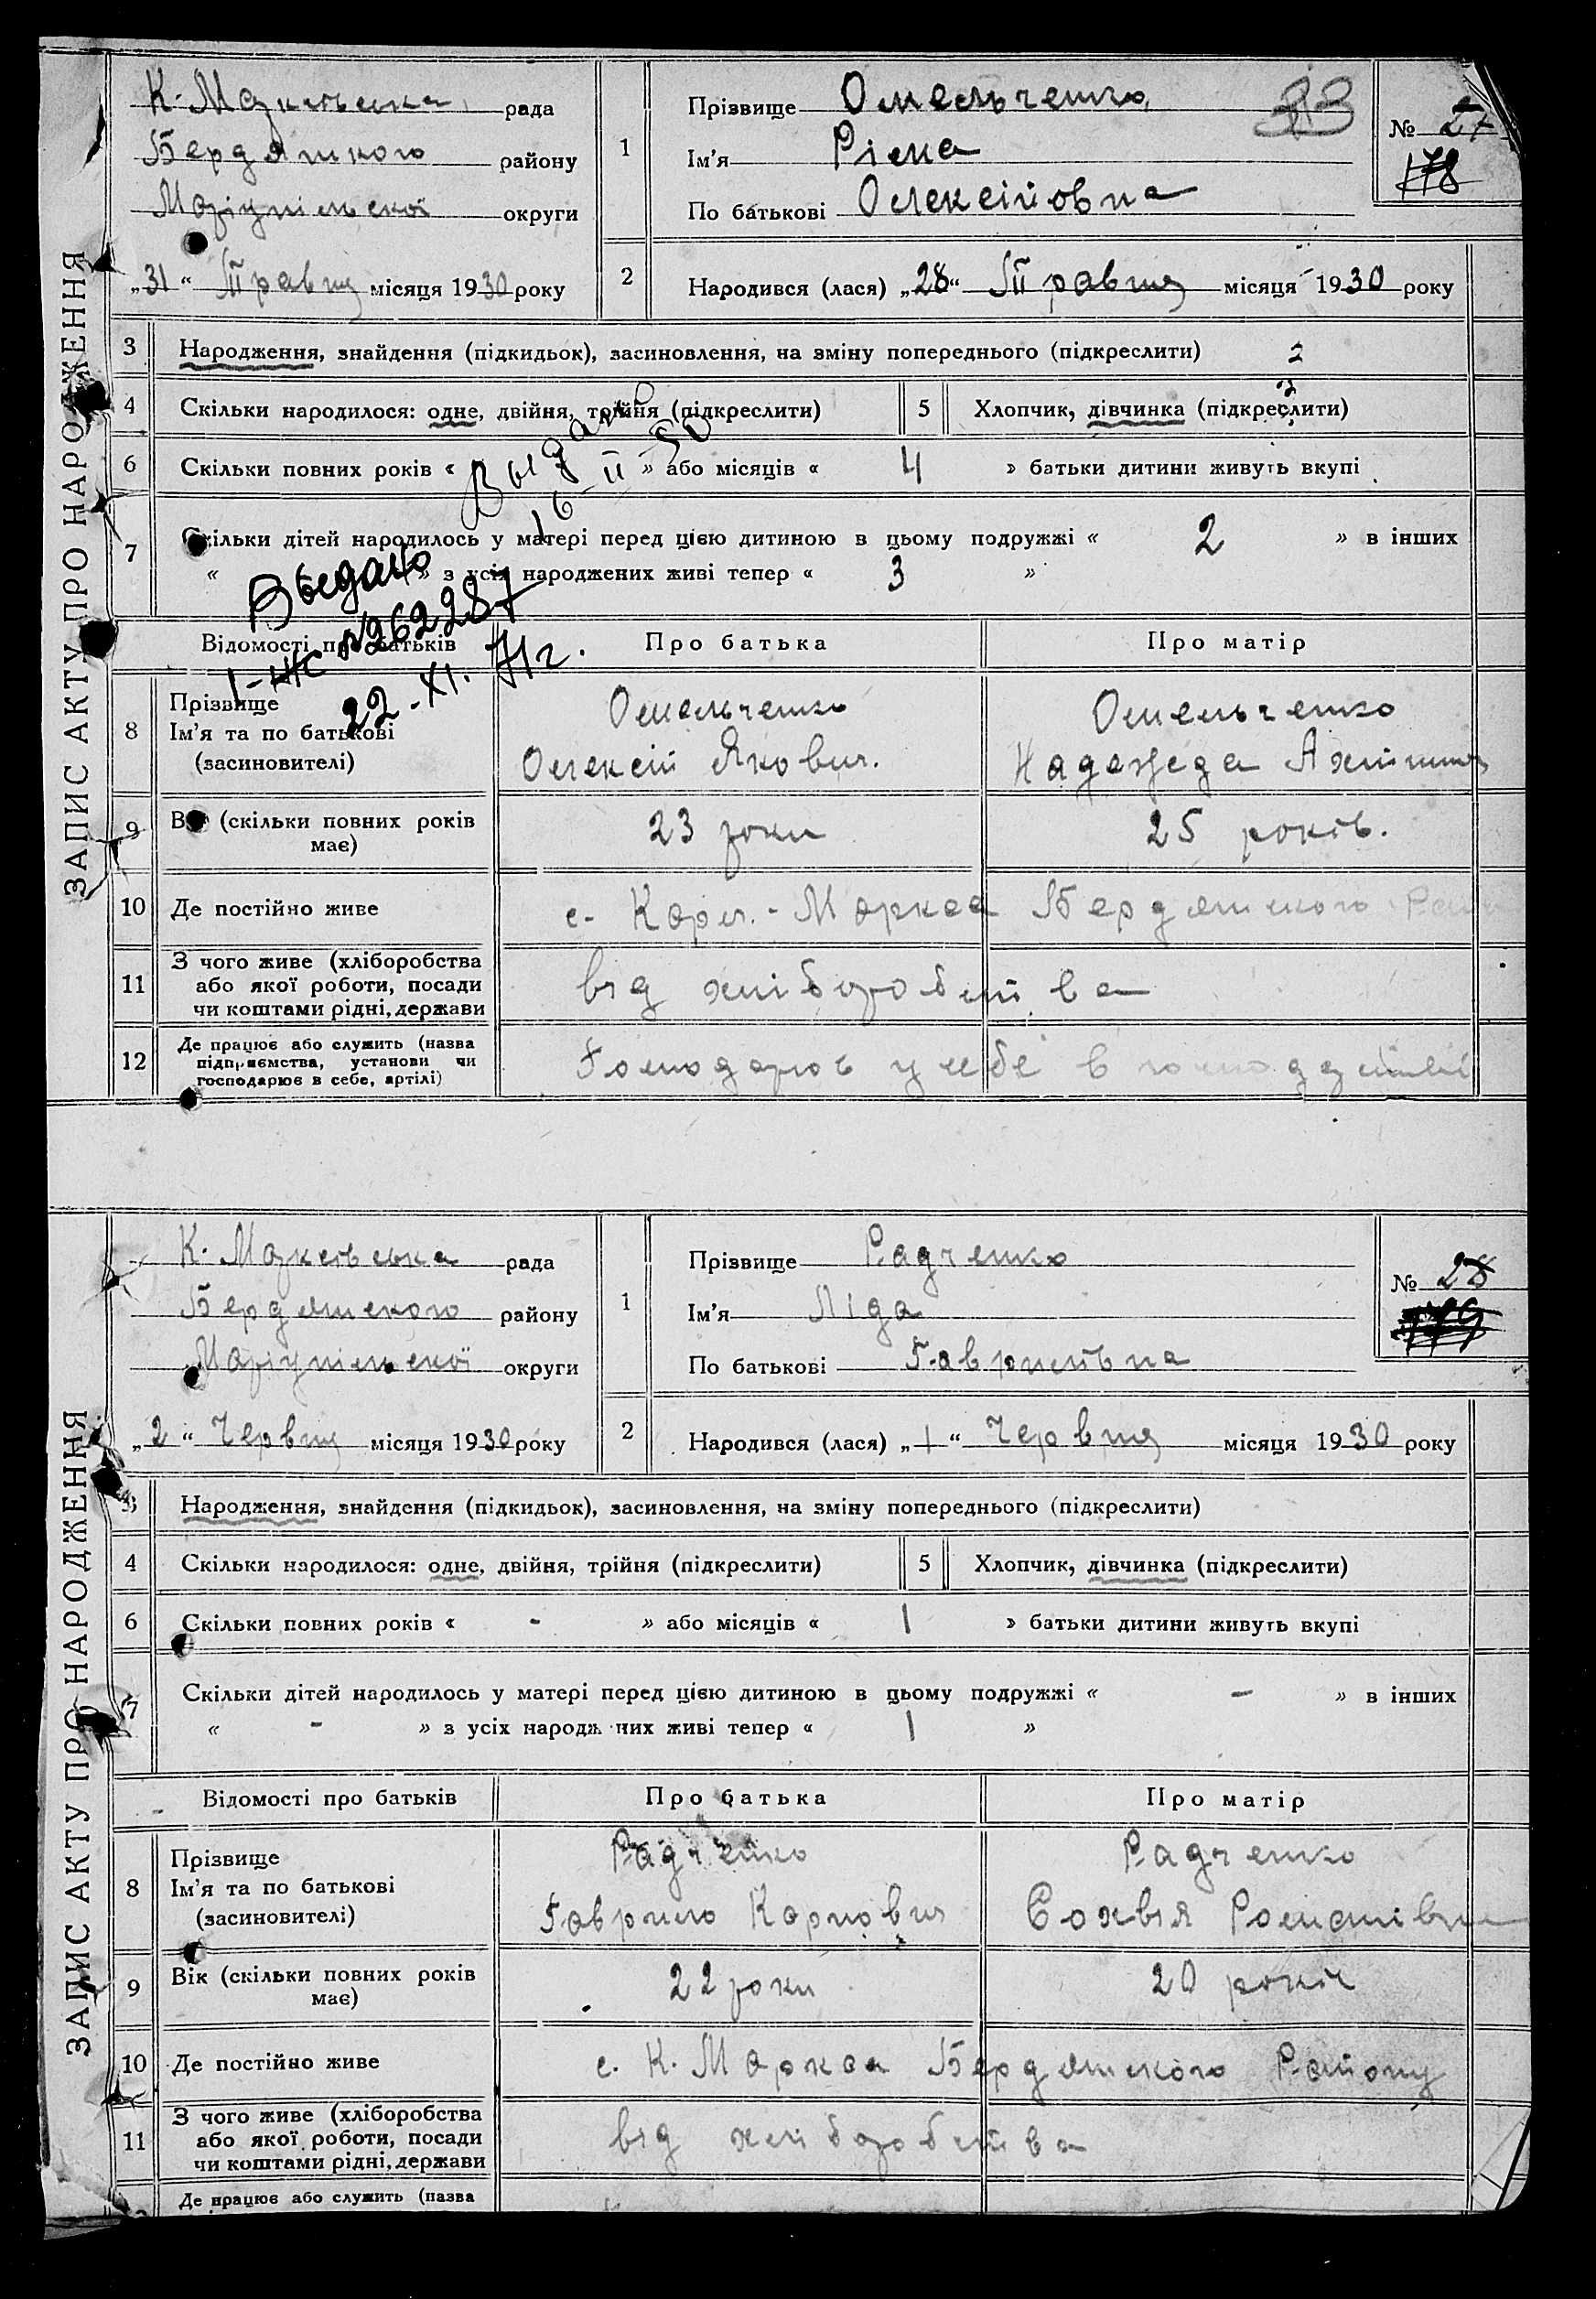 ЗАПИС АКТУ ПРО НАРОДЖЕННЯ
К. Марксівська рада
Бердянського району
Маріупільської округи
„31“ Травня місяця 1930 року
1
Прізвище Омельченко
Ім'я Ріма
По батькові Олексійовна
33
№ 27
178
2
Народився (лася) „28“ Травня місяця 1930 року
3 Народження, знайдення (підкидьок), засиновлення, на зміну попереднього (підкреслити) 2
4 Скільки народилося: одне, двійня, трійня (підкреслити) 5 Хлопчик, дівчинка (підкреслити)
6 Скільки повних років « » або місяців « 4 » батьки дитини живуть вкупі
7 Скільки дітей народилось у матері перед цією дитиною в цьому подружжі « 2 » в інших
« » з усіх народжених живі тепер « 3 »
Выдано
16-II-50
Выдано
I-ЖС №262287
22-XI. 71г.
Відомості про батьків Про батька Про матір
8 Прізвище
Ім'я та по батькові
(засиновителі)
Омельченко
Олексій Якович.
Омельченко
Надежда
9 Вік (скільки повних років має) 23 роки 25 років.
10 Де постійно живе с. Карл.-Маркса Бердянського Рай
11 З чого живе (хліборобства
або якої роботи, посади
чи коштами рідні, держави
від хліборобства
12 Де працює або служить (назва
підприємства, установи чи
господарює в себе, артілі)
Господарює у себе в господарстві
ЗАПИС АКТУ ПРО НАРОДЖЕННЯ
К. Марксівська рада
Бердянського району
Маріупільської округи
„2“ Червня місяця 1930 року
1
Прізвище Радченко
Ім'я Ліда
По батькові Гаврилівна
№ 28
179
2
Народився (лася) „1“ Червня місяця 1930 року
3 Народження, знайдення (підкидьок), засиновлення, на зміну попереднього (підкреслити)
4 Скільки народилося: одне, двійня, трійня (підкреслити) 5 Хлопчик, дівчинка (підкреслити)
6 Скільки повних років « - » або місяців « 1 » батьки дитини живуть вкупі
7 Скільки дітей народилось у матері перед цією дитиною в цьому подружжі « - » в інших
« - » з усіх народжених живі тепер « 1 »
Відомості про батьків Про батька Про матір
8 Прізвище
Ім'я та по батькові
(засиновителі)
Радченко
Гаврило Карпович
Радченко
Софья Романівна
9 Вік (скільки повних років має) 22 роки 20 років
10 Де постійно живе с. К. Маркса Бердянського Району
11 З чого живе (хліборобства
або якої роботи, посади
чи коштами рідні, держави
від хліборобства
Де працює або служить (назва